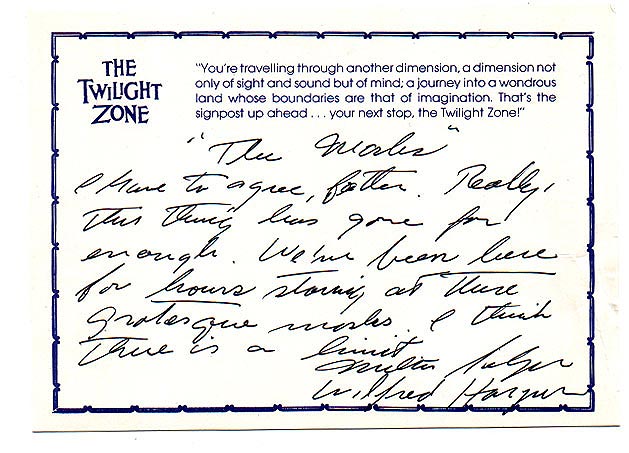 THE
TWILIGHT
ZONE
"You're travelling through another dimension, a dimension not
only of sight and sound but of mind; a journey into a wondrous
land whose boundaries are that of imagination. That's the
signpost up ahead . . . your next stop, the Twilight Zone!"
"The Masks"
I have to agree, father. Really,
this thing has gone far
enough. We've been here
for hours staring at these
grotesque masks. I think
there is a limit
Milton Selzer
Wilfred Harper